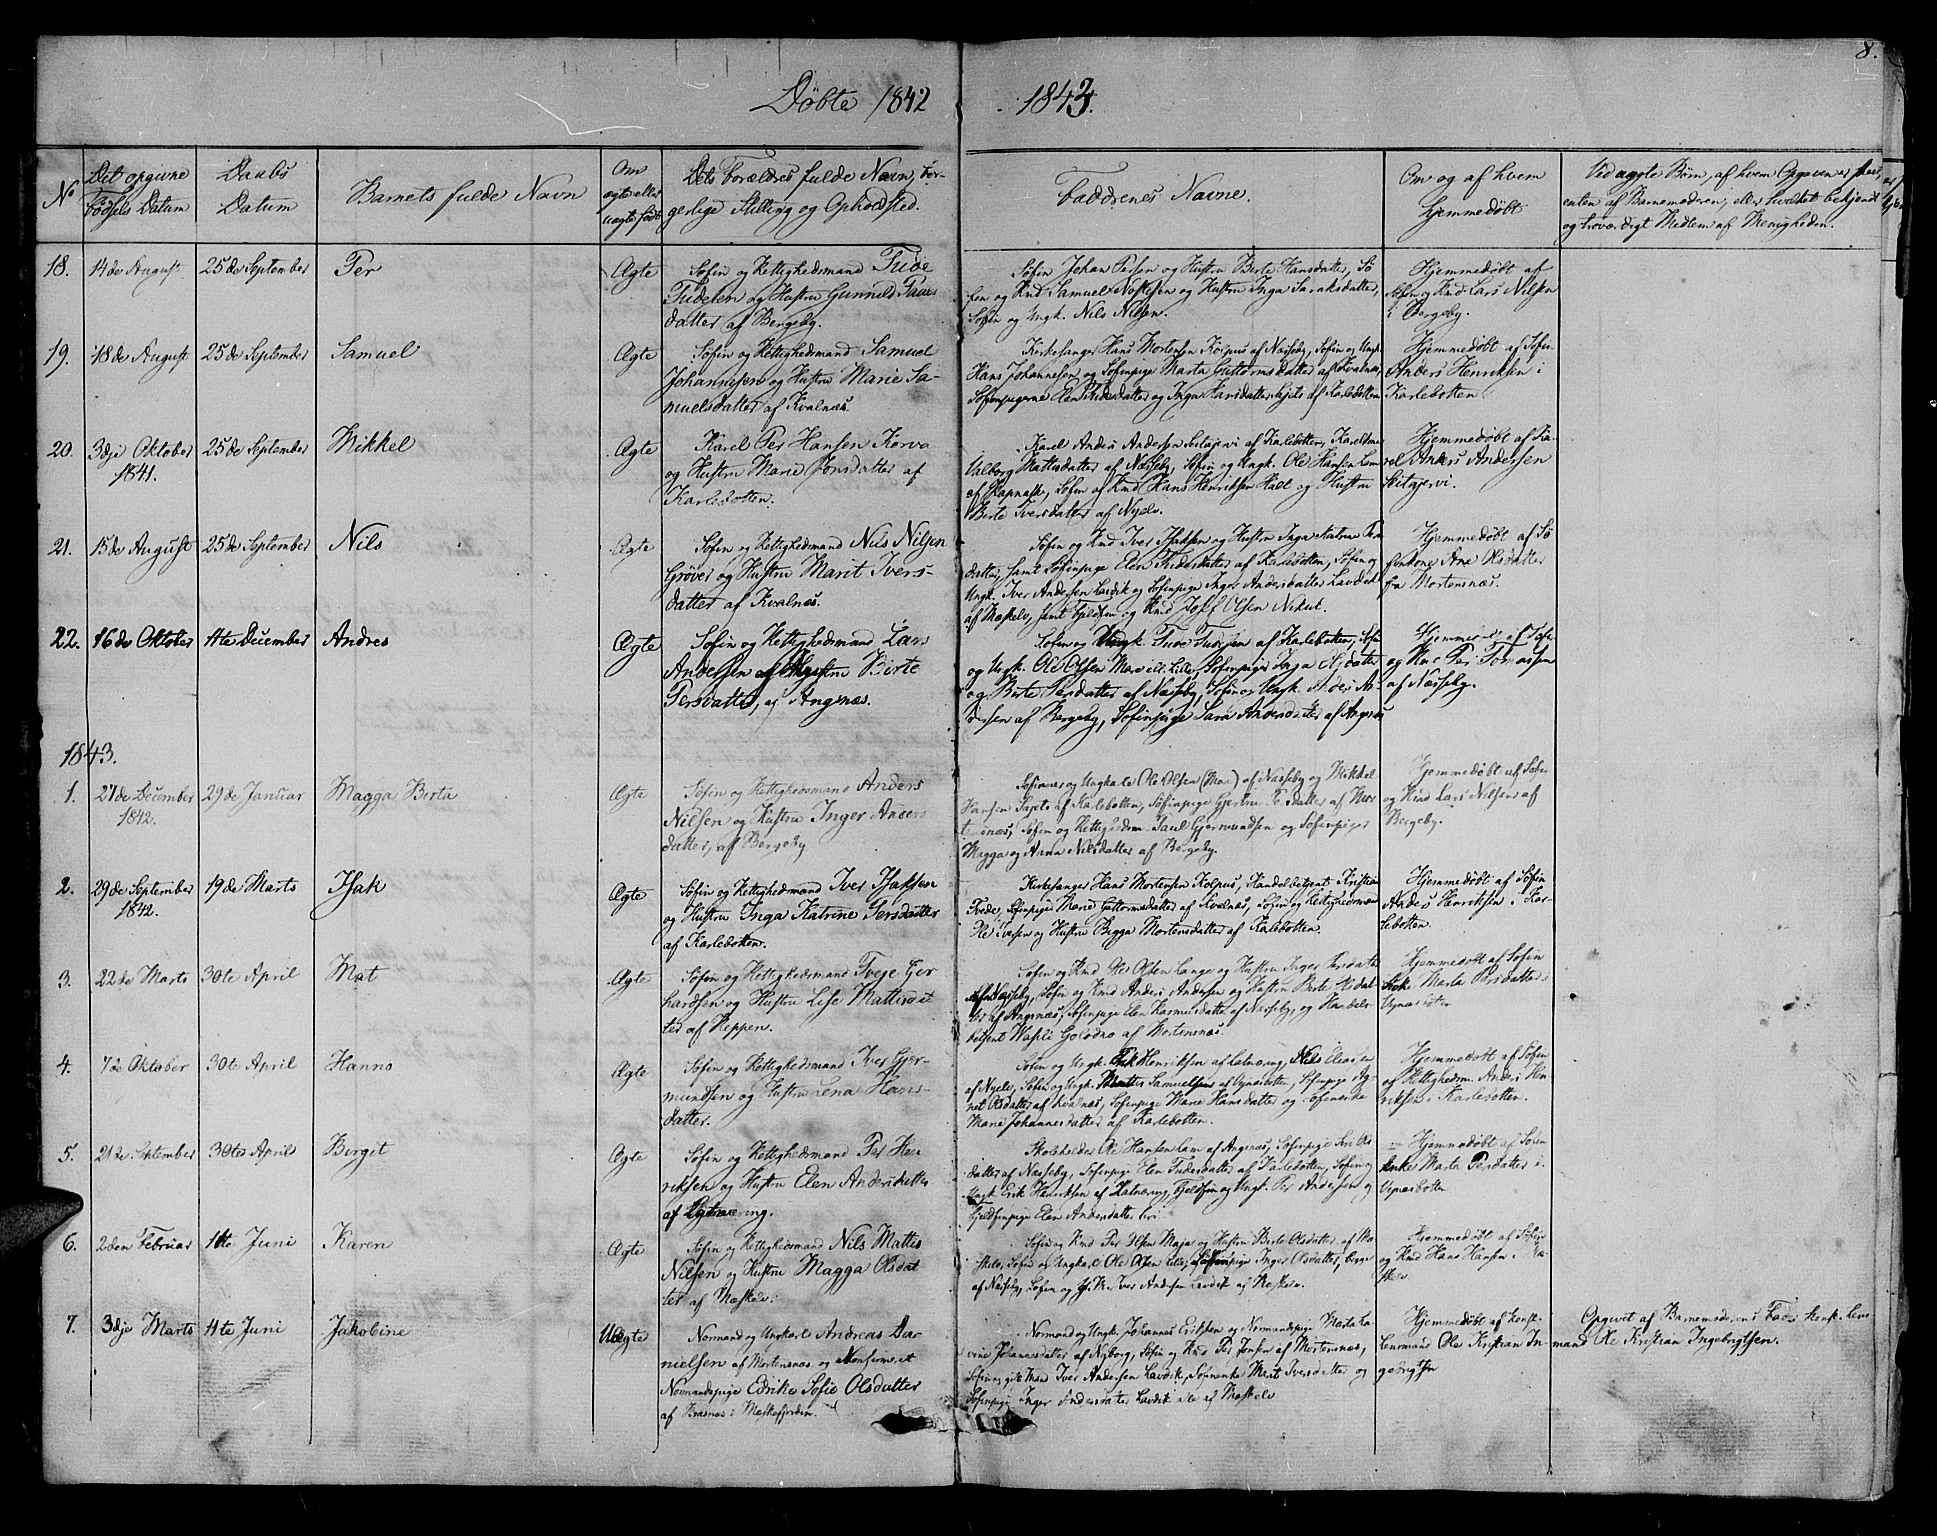 8.
Døbte 1842
1843.
No
Det opgivne
Fødsels Datum
Daabs
Datum
Barnets fulde Navn
Om
ægte eller
uægte født
Dets Forældres fulde Navn, bor-
gerlige Stilling og Opholdsted.
Faddrenes Navne.
Om og af hvem
hjemmedøbt
Ved uægte Børn, af hvem Opgaven er skeet,
enten af Barnemoderen, eller hvilket bekjendt
og troværdigt Medlem af Menigheden.
18. 14de August 25de September Per Ægte
Søfin og Rettighedsmand Tude
Tudesen og Hustru Gunnild Paars
datter af Bergeby.
Søfin Johan Persen og Hustru Berte Hansdatter, Sø
fin og Rmd Samuel Noskesen og Hustru Inga Saraksdatter,
Søfin og Ungk. Nils Nilsen.
Hjemmedøbt af
Søfin og Rmd. Lars Nilsen
i Bergeby.
19. 18de August 25de September Samuel Ægte
Søfin og Rettighedsmand Samuel
Johannesen og Hustru Marie Sa-
muelsdatter af Kvalnæs.
Kirkesanger Hans Mortensen Kolpus af Næsseby, Søfin og Ungk.
Hans Johannesen og Søfinpige Marta Guttormsdatter af Kvalnæs,
Søfinpigerne Elen Tudesdatter og Inga Hansdatter af Karlebotten
Hjemmedøbt af Søfin
Anders Henriksen i
Karlebotten.
20. 3dje Oktober 25de September Mikkel Ægte
1841.
Karel Per Hansen Korva
og Hustru Marie Jonsdatter af
Karlebotten.
Karel Anders Andersen Seitajervi af Karlebotten,
Valborg Mattisdatter af Næsseby, Søfin og Ungk. Ole Hansen Lam
Søfin og Rmd Hans Henriksen Halt og Hustru
Berte Iversdatter af Nyelv.
Hjemmedøbt af Ka-
rel Anders Andersen
Seitajervi.
21. 15de August 25de September Nils Ægte
Søfin og Rettighedsmand Nils Nilsen
Grøver og Hustru Marit Ivers-
datter af Kvalnæs.
Søfin og Rmd Iver Isaksen og Hustru Inga Katrine
datter, samt Søfinpige Elen Tudesdatter af Karlebotten, Søfin og
Ungk. Iver Andersen Lavdik og Søfinpige Inger Andersdatter Lavdik
af Mæskelv, samt Fjeldfin og Rmd Josef Olsen Nikut.
Hjemmedøbt af Sø
finkone Ane Olsdatter
fra Mortensnæs.
22. 16de Oktober 11te December Andres Ægte
Søfin og Rettighedsmand Lars
Andersen og Hustru Birte
Persdatter, af Angsnæs.
Søfin og Ungk. Tude Tudesen af Karlebotten, Søfin
og Ungk. Ole Olsen Mar Lille, Søfinpige Inga Olsdatter
og Berte Persdatter af Næsseby, Søfin og Ungk. Anders An-
dersen af Bergeby, Søfinpige Sara Andersdatter af Angsnæs
Hjemmedøbt af Søfin
og Rmd Per Tomassen
af Næsseby.
1843.
1. 27de December 29de Januar Magga Birta Ægte
1842.
Søfin og Rettighedsmand Anders
Nilsen og Hustru Inger Anders
datter, af Bergeby
Søfinnes og Ungkarle Ole Olsen (Mar) af Næsseby og Mikkel
Hansen Sajets af Karlebotten, Søfinpige Gjertru Persdatter af Mor
tensnæs, Søfin og Rettighedsm. Paul Gjermundsen og Søfinpiger
Magga og Anna Nilsdatter af Bergeby.
Hjemmedøbt af Søfin
og Rmd Lars Nilsen af
Bergeby.
2. 29de September 19de Marts Isak Ægte
1842.
Søfin og Rettighedsmand Iver Isaksen
og Hustru Inga Katrine Persdatter
af Karlebotten.
Kirkesanger Hans Mortensen Kolpus, Handelsbetjent Kristian
Tvede, Søfinpige Marie Guttormsdatter af Kvalnæs, Søfin og Rettighedsmand
Ole Iversen og Hustru Bigga Mortensdatter af Karlebotten.
Hjemmedøbt af Søfin
Anders Henriksen i Kar-
lebotten.
3. 22de Marts 30te April Mat Ægte
Søfin og Rettighedsmand Tvege Ger
hardsen og Hustru Lise Mattisdat
ter af Reppen.
Søfin og Rmd Ole Olsen Lange og Hustru Inger Persdatter
af Næsseby, Søfin og Rmd Anders Andersen og Hustru Birte
ter af Angsnæs, Søfinpige Elen Rasmusdatter af Næsseby, og Handels-
betjent Wasili Golodno af Mortensnæs.
Hjemmedøbt af Søfin
Enke Marta Persdatter i
4. 7de Oktober 30te April Hanno Ægte
Søfin og Rettighedsmand Iver Gjer-
mundsen og Hustru Lena Hans-
datter.
Søfin og Ungk. Erik Henriksen af Latnæring, Nils Eliasen
af Nyelv, Søfin og Ungk. Mattis Samuelsen
Olsdatter af Kvalnæs, Søfinpige Marie Hansdatter og
Marie Johannesdatter af Karlebotten.
Hjemmedøbt af Søfin
og Rettighedsm. Anders Hen-
riksen i Karlebotten.
5. 21de September 30te April Birgit Ægte
Søfin og Rettighedsmand Per Hen
riksen og Hustru Elen Andersdatter
af Latnæring.
Skoleholder Ole Hansen Lam af Angsnæs, Søfinpige Siri Ols
datter af Næsseby, Søfinpige Elen Tudesdatter af Karlebotten, Søfin og
Ungk. Erik Henriksen af Latnæring, Fjeldfin og Ungk. Per Andersen og
Fjeldfinpige Elen Andersdatter
Hjemmedøbt af Søfin
Enke Marta Persdatter i
6. 2den Februar 11te Juni Karen Ægte
Søfin og Rettighedsmand Nils Mattis
Nilsen og Hustru Magga Olsdat
ter af Mæskelv.
Søfin og Rmd Per Olsen Maja og Hustru Berte Olsdatter af Mæ
skelv, Søfin og Ungkarl Ole Olsen Lille, Søfinpige Inger Olsdatter, begge
af Næsseby, Søfin og Iver Andersen Lavdik af Mæskelv.
Hjemmedøbt af Søfin
og Rmd Hans Hansen i Mæ
skelv
7. 3dje Marts 11te Juni Jakobine Uægte
Normand og Ungkarl Andreas Da-
nielsen af Mortensnæs og konfirmeret
Normandspige Edrikke Sofie Olsdatter
af Brasnæs i Mæskefjorden.
Normand og Ungk. Johannes Eriksen og Normandspige Marta La-
vine Johannesdatter af Nyborg, Søfin og Rmd Per Jonsen af Mortensnæs,
Søfin og gift Mand Iver Andersen Lavdik, Søfinenke Marit Iversdatter og
Søfinpige Inger Andersdatter Lavdik alle af Mæskelv
Hjemmedøbt af Konst.
Lensmand Ole Kristian In
gebrigtsen
Opgivet af Barnemoderens Fader Konst. Lens
mand Ole Kristian Ingebrigtsen.